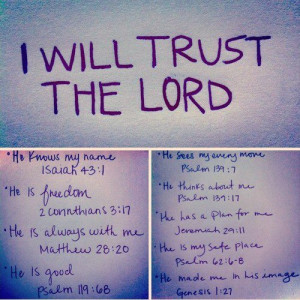 I WILL TRUST
THE LORD
• He knows my name
Isaiah 43:1
• He is freedom
2 corinthians 3:17
• He is always with me
Matthew 28:20
• He is good
Psalm 119:68
• He sees my every move
Psalm 139:7
• He thinks about me
Psalm 139:17
• He has a plan for me
Jeremiah 29:11
• He is my safe place
Psalm 62:6-8
• He made me in his image
Genesis 1:27